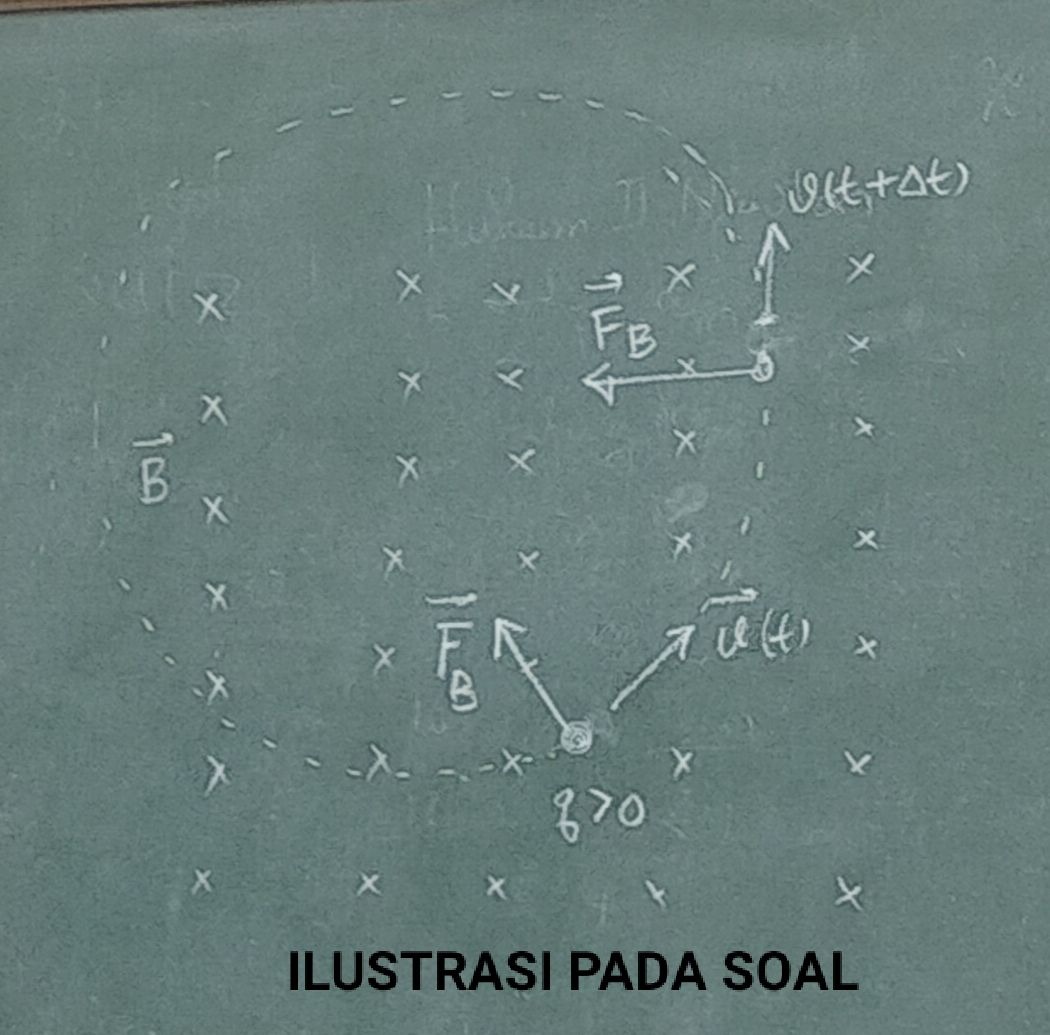 v(t+Δt)
F⃗_B
B⃗
F⃗_B
v⃗(t)
q>0
ILUSTRASI PADA SOAL